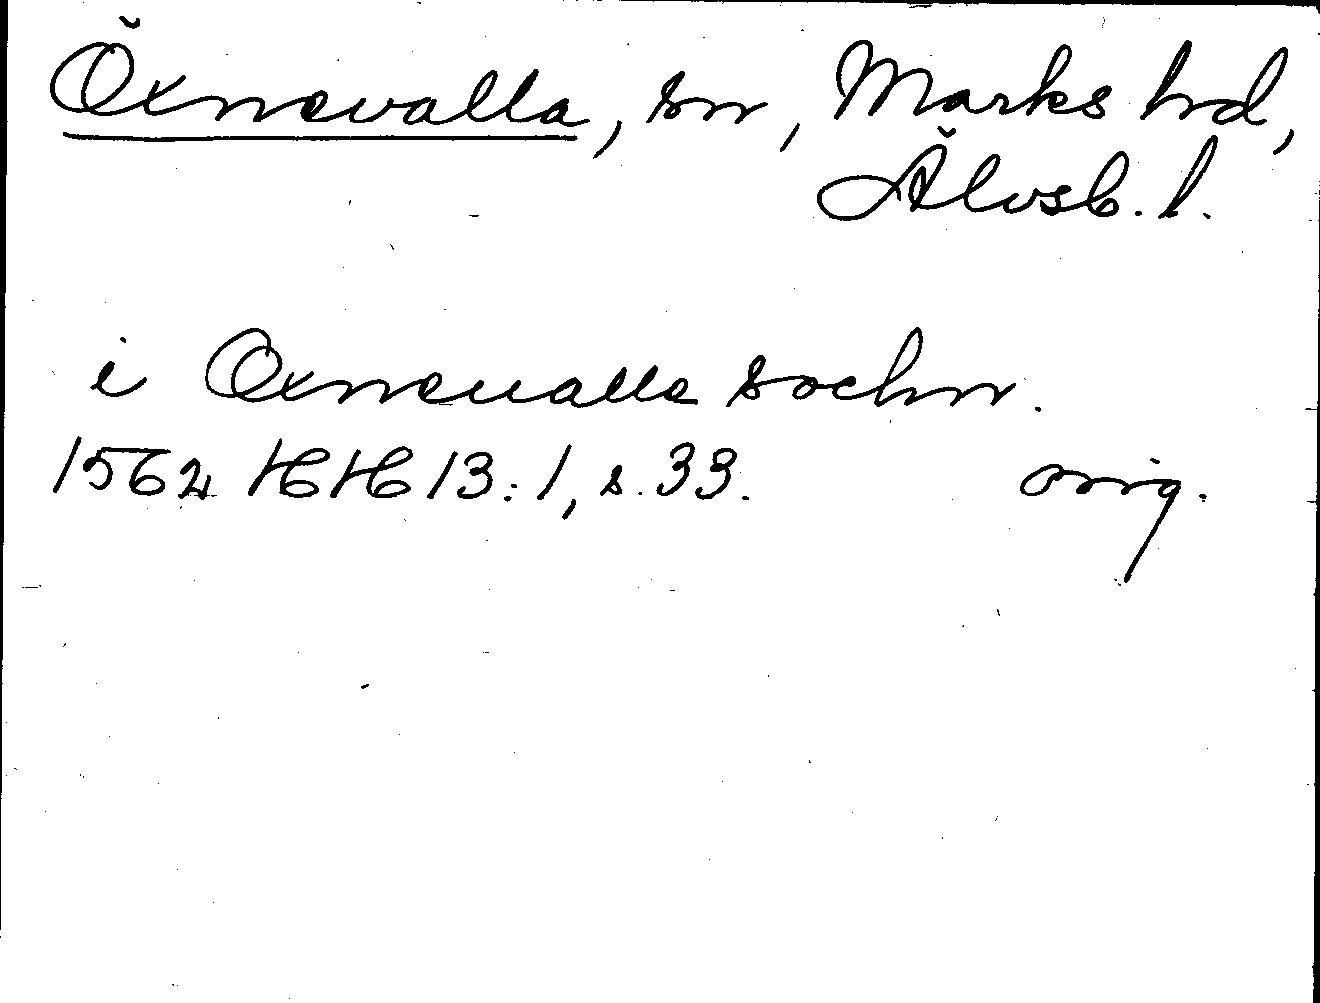 Öxnevalla, sn, Marks hd,
Älvsb. l.
i Oxneualle sochn.
1562 HH 13:1, s. 33. orig.